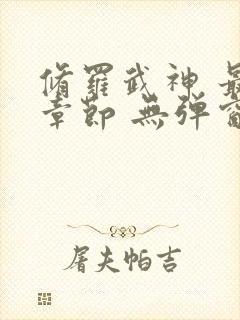 脩羅武神 最
章節 無彈窗
屠夫帕吉